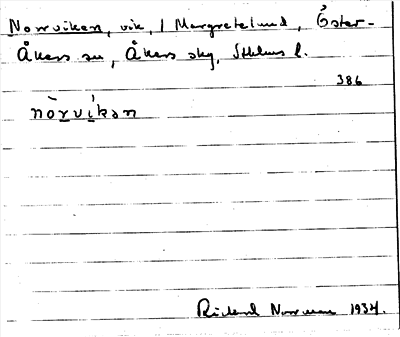 Norrviken, vik, / Margretelund, Öster-
Åkers sn, Åkers skg, Sthlms l.
386
nòrvíkən
Rickard Norrman 1934.